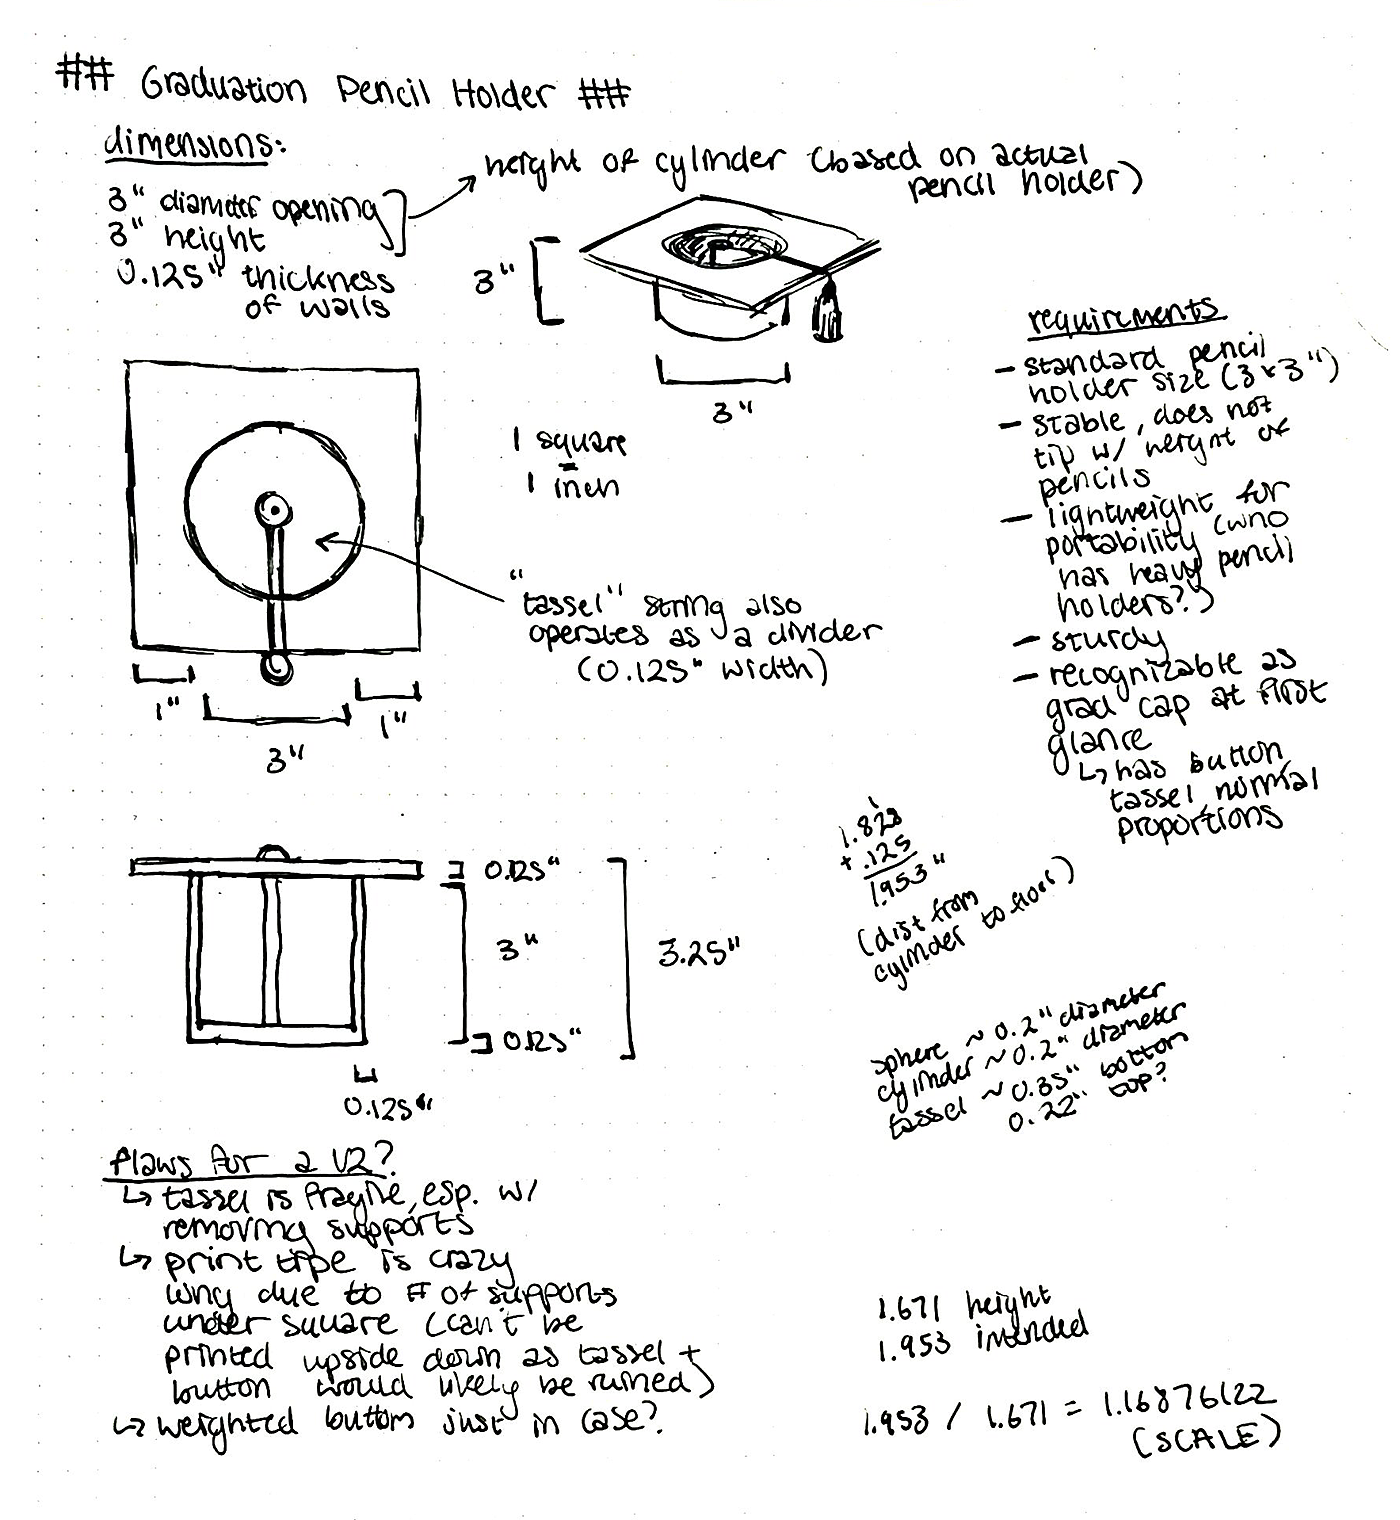 ## Graduation Pencil Holder ##
dimensions:
3" diameter opening
3" height
0.125" thickness
of walls
height of cylinder (based on actual
pencil holder)
3"
3"
1 square
=
1 inch
"tassel" string also
operates as a divider
(0.125" width)
1"
3"
1"
requirements
- standard pencil
holder size (3x3")
- stable, does not
tip w/ weight of
pencils
- lightweight for
portability (who
has heavy pencil
holders?)
- sturdy
- recognizable as
grad cap at first
glance
↳ has button,
tassel, normal
proportions
0.125"
3"
3.25"
0.125"
0.125"
1
1.828
+ .125
1.953"
(dist from
cylinder to floor)
sphere ~ 0.2" diameter
cylinder ~ 0.2" diameter
tassel ~ 0.35" bottom
0.22" top?
flaws for a V2?
↳ tassel is fragile, esp. w/
removing supports
↳ print time is crazy
long due to # of supports
under square (can't be
printed upside down as tassel +
button would likely be ruined)
↳ weighted bottom just in case?
1.671 height
1.953 intended
1.953 / 1.671 = 1.16876122
(SCALE)